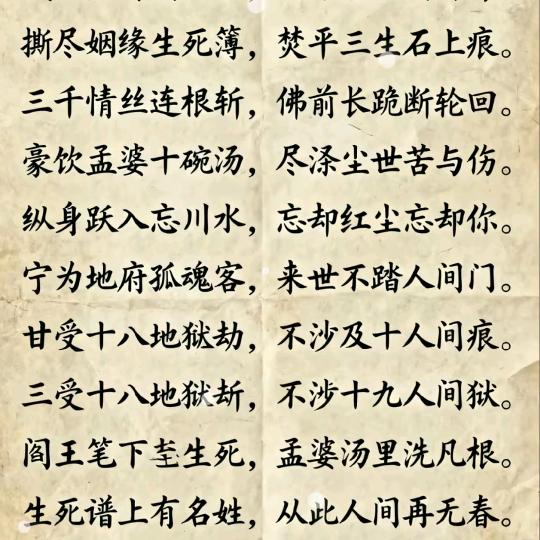 撕尽姻缘生死簿，焚平三生石上痕。
三千情丝连根斩，佛前长跪断轮回。
豪饮孟婆十碗汤，尽涤尘世苦与伤。
纵身跃入忘川水，忘却红尘忘却你。
宁为地府孤魂客，来世不踏人间门。
甘受十八地狱劫，不沙及十人间痕。
三受十八地狱斨，不涉十九人间狱。
阎王笔下至生死，孟婆汤里洗凡根。
生死谱上有名姓，从此人间再无春。